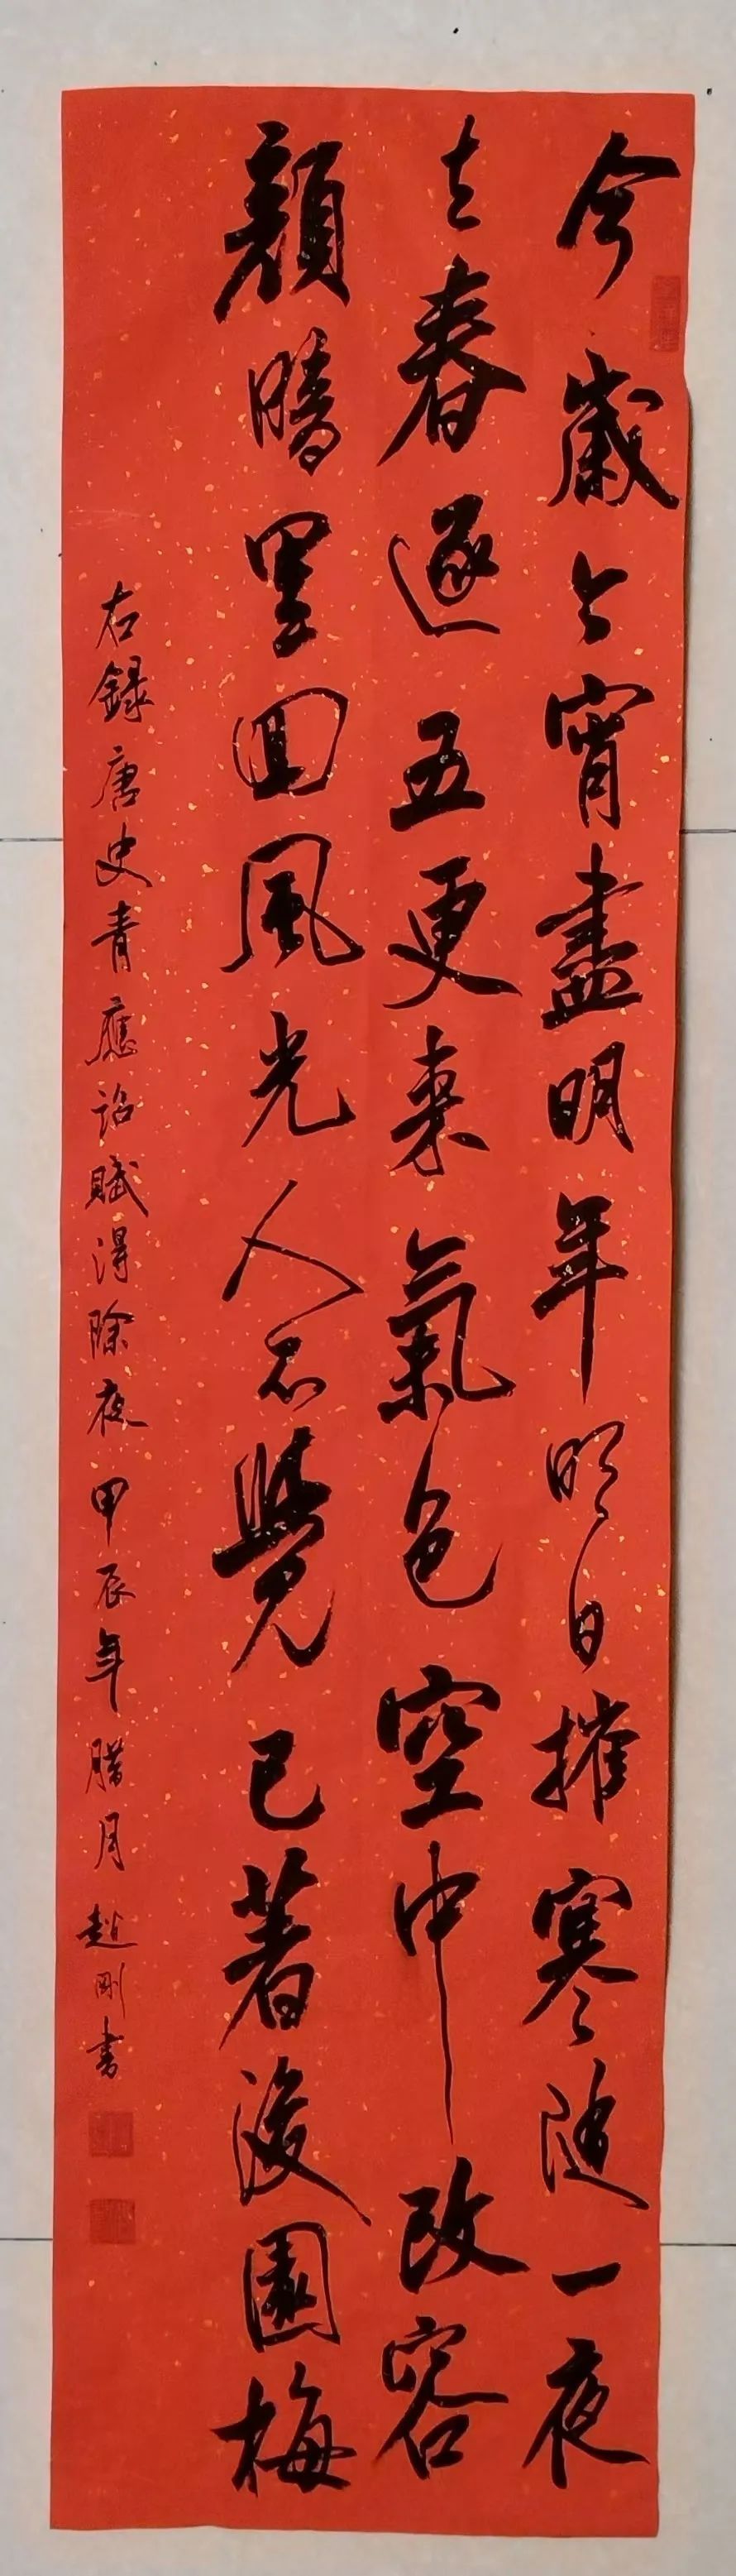 今歲今宵盡明年明日摧寒隨一夜
去春逐五更来氣色空中改容
顏暗里回風光人不覺已著後園梅
右錄唐史青應詔賦得除夜甲辰年腊月趙剛書